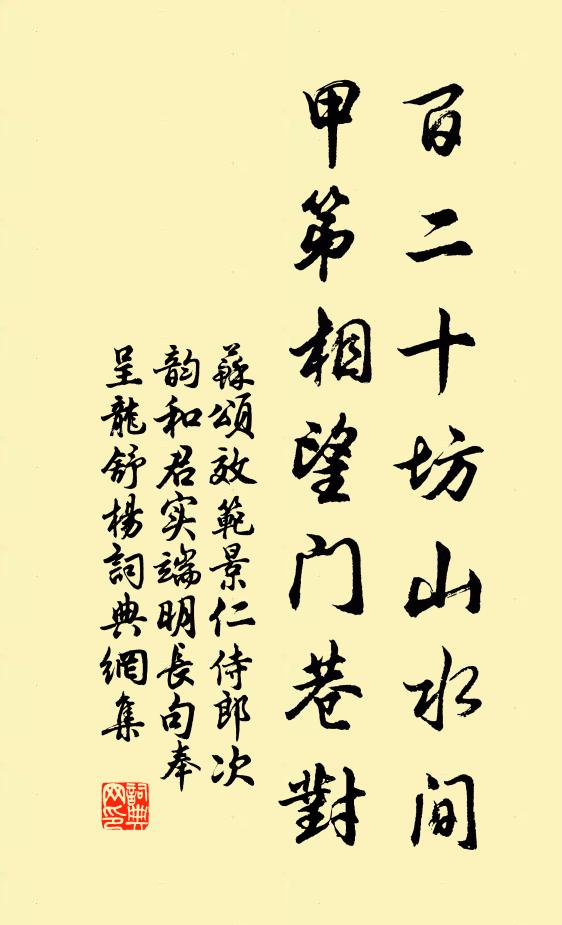 百二十坊山水间
甲第相望门巷對
蘇頌效範景仁侍郎次
韵和君实端明長句奉
呈龍舒楊詞典網集
詞典
网印